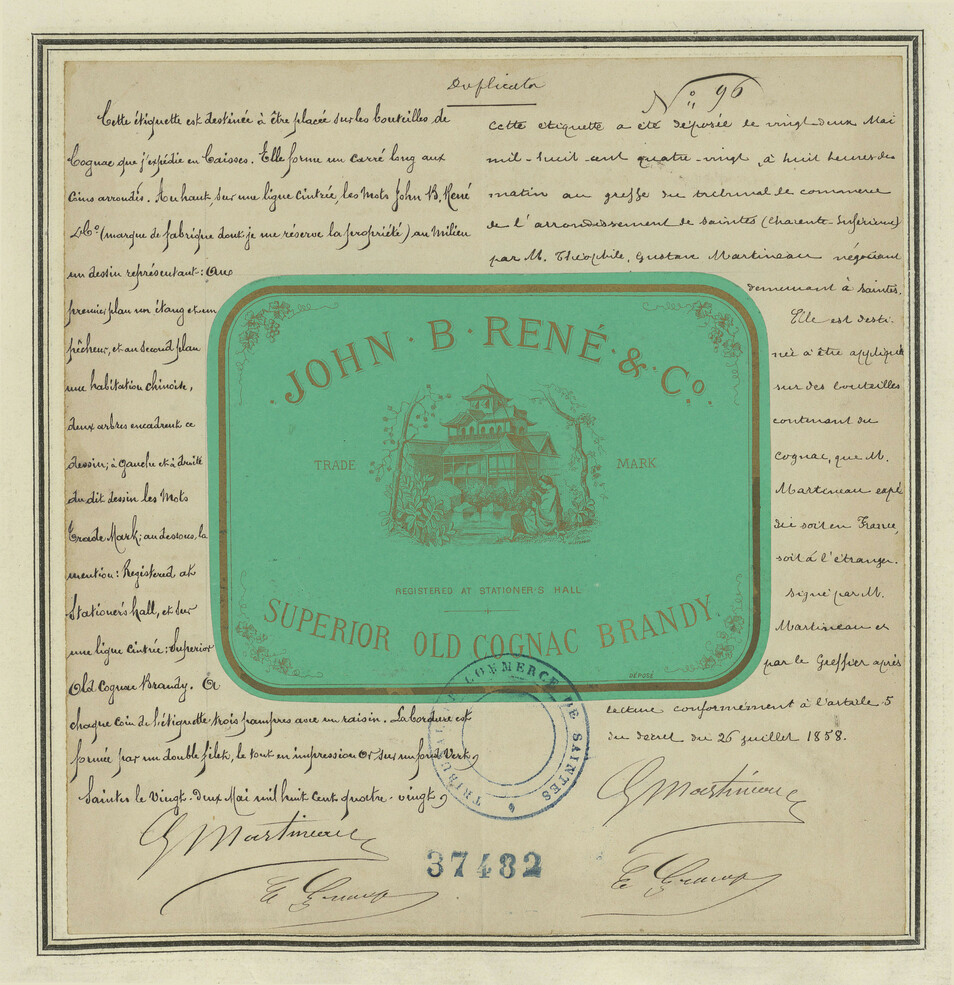 Duplicata
N° 96
Cette étiquette est destinée à être placée sur les bouteilles de
Cognac que j'expédie en Caisses. Elle forme un carré long aux
Coins arrondis. Au haut, sur une ligne cintrée, les Mots John B. René
& C° (marque de fabrique dont je me réserve la propriété) au Milieu
un dessin représentant: Au
premier plan un étang et un
pêcheur, et au second plan
une habitation chinoise,
deux arbres encadrent ce
dessin; à gauche et à droite
du dit dessin les Mots
Trade Mark; au dessous, la
mention: Registered at
Stationer's hall, et sur
une ligne cintrée: Superior
Old Cognac Brandy. A
chaque coin de l'étiquette trois pampres avec un raisin. La bordure est
formée par un double filet, le tout en impression Or sur un fond Vert,
Saintes le Vingt-deux Mai mil huit Cent quatre-vingt,
G Martineau
JOHN · B · RENÉ · & · Co.
TRADE MARK
REGISTERED AT STATIONER'S HALL
SUPERIOR OLD COGNAC BRANDY.
DÉPOSÉ
Cette étiquette a été déposée le vingt-deux Mai
mil-huit-cent quatre-vingt, à huit heures du
matin au greffe du tribunal de commerce
de l'arrondissement de Saintes (Charente-Inférieure)
par M. Théophile, Gustave Martineau négociant
demeurant à Saintes.
Elle est desti-
née à être appliquée
sur des bouteilles
contenant du
Cognac, que M.
Martineau expé
die soit en France,
soit à l'étranger.
Signé par M.
Martineau et
par le Greffier après
lecture conformément à l'article 5
du décret du 26 juillet 1858.
G Martineau
TRIBUNAL DE COMMERCE DE SAINTES
37482